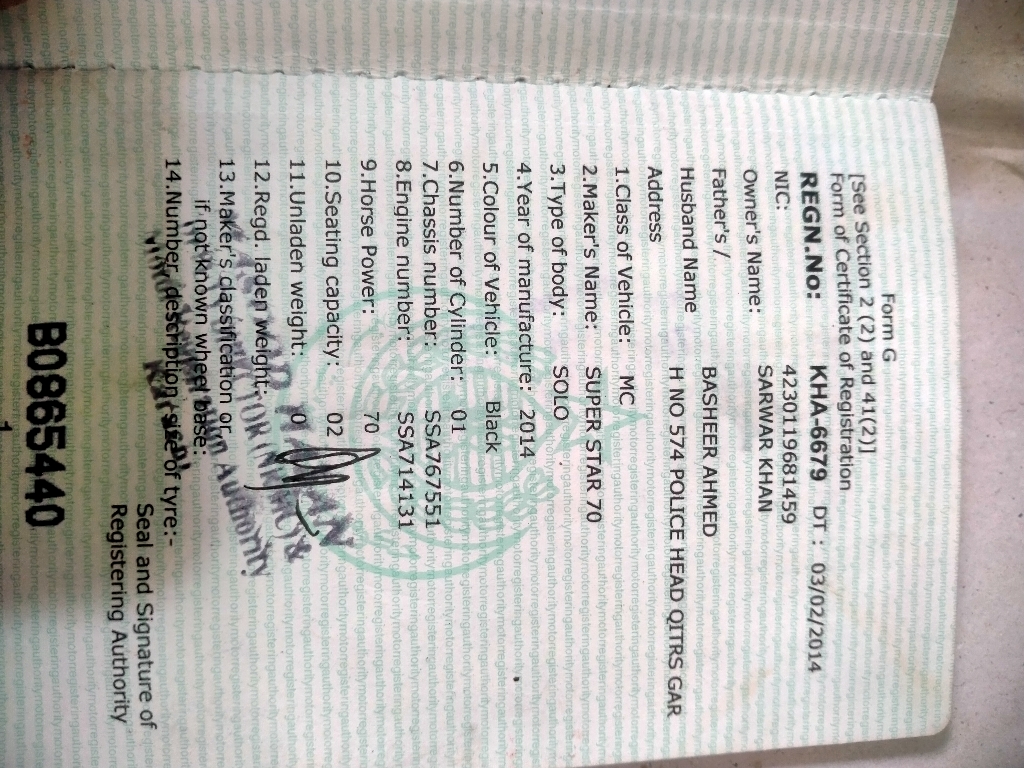 Form G
[See Section 2 (2) and 41(2)]
Form of Certificate of Registration
REGN.No: KHA-6679 DT : 03/02/2014
NIC: 4230119681459
Owner's Name: SARWAR KHAN
Father's /
Husband Name BASHEER AHMED
Address H NO 574 POLICE HEAD QITRS GAR
1.Class of Vehicle: MC
2.Maker's Name: SUPER STAR 70
3.Type of body: SOLO
4.Year of manufacture: 2014
5.Colour of Vehicle: Black
6.Number of Cylinder: 01
7.Chassis number: SSA767551
8.Engine number: SSA714131
9.Horse Power: 70
10.Seating capacity: 02
11.Unladen weight: 0
12.Regd. laden weight:
13.Maker's classification or
if not known wheel base:
14.Number, description, size of tyre:-
Seal and Signature of
Registering Authority
B0865440
1